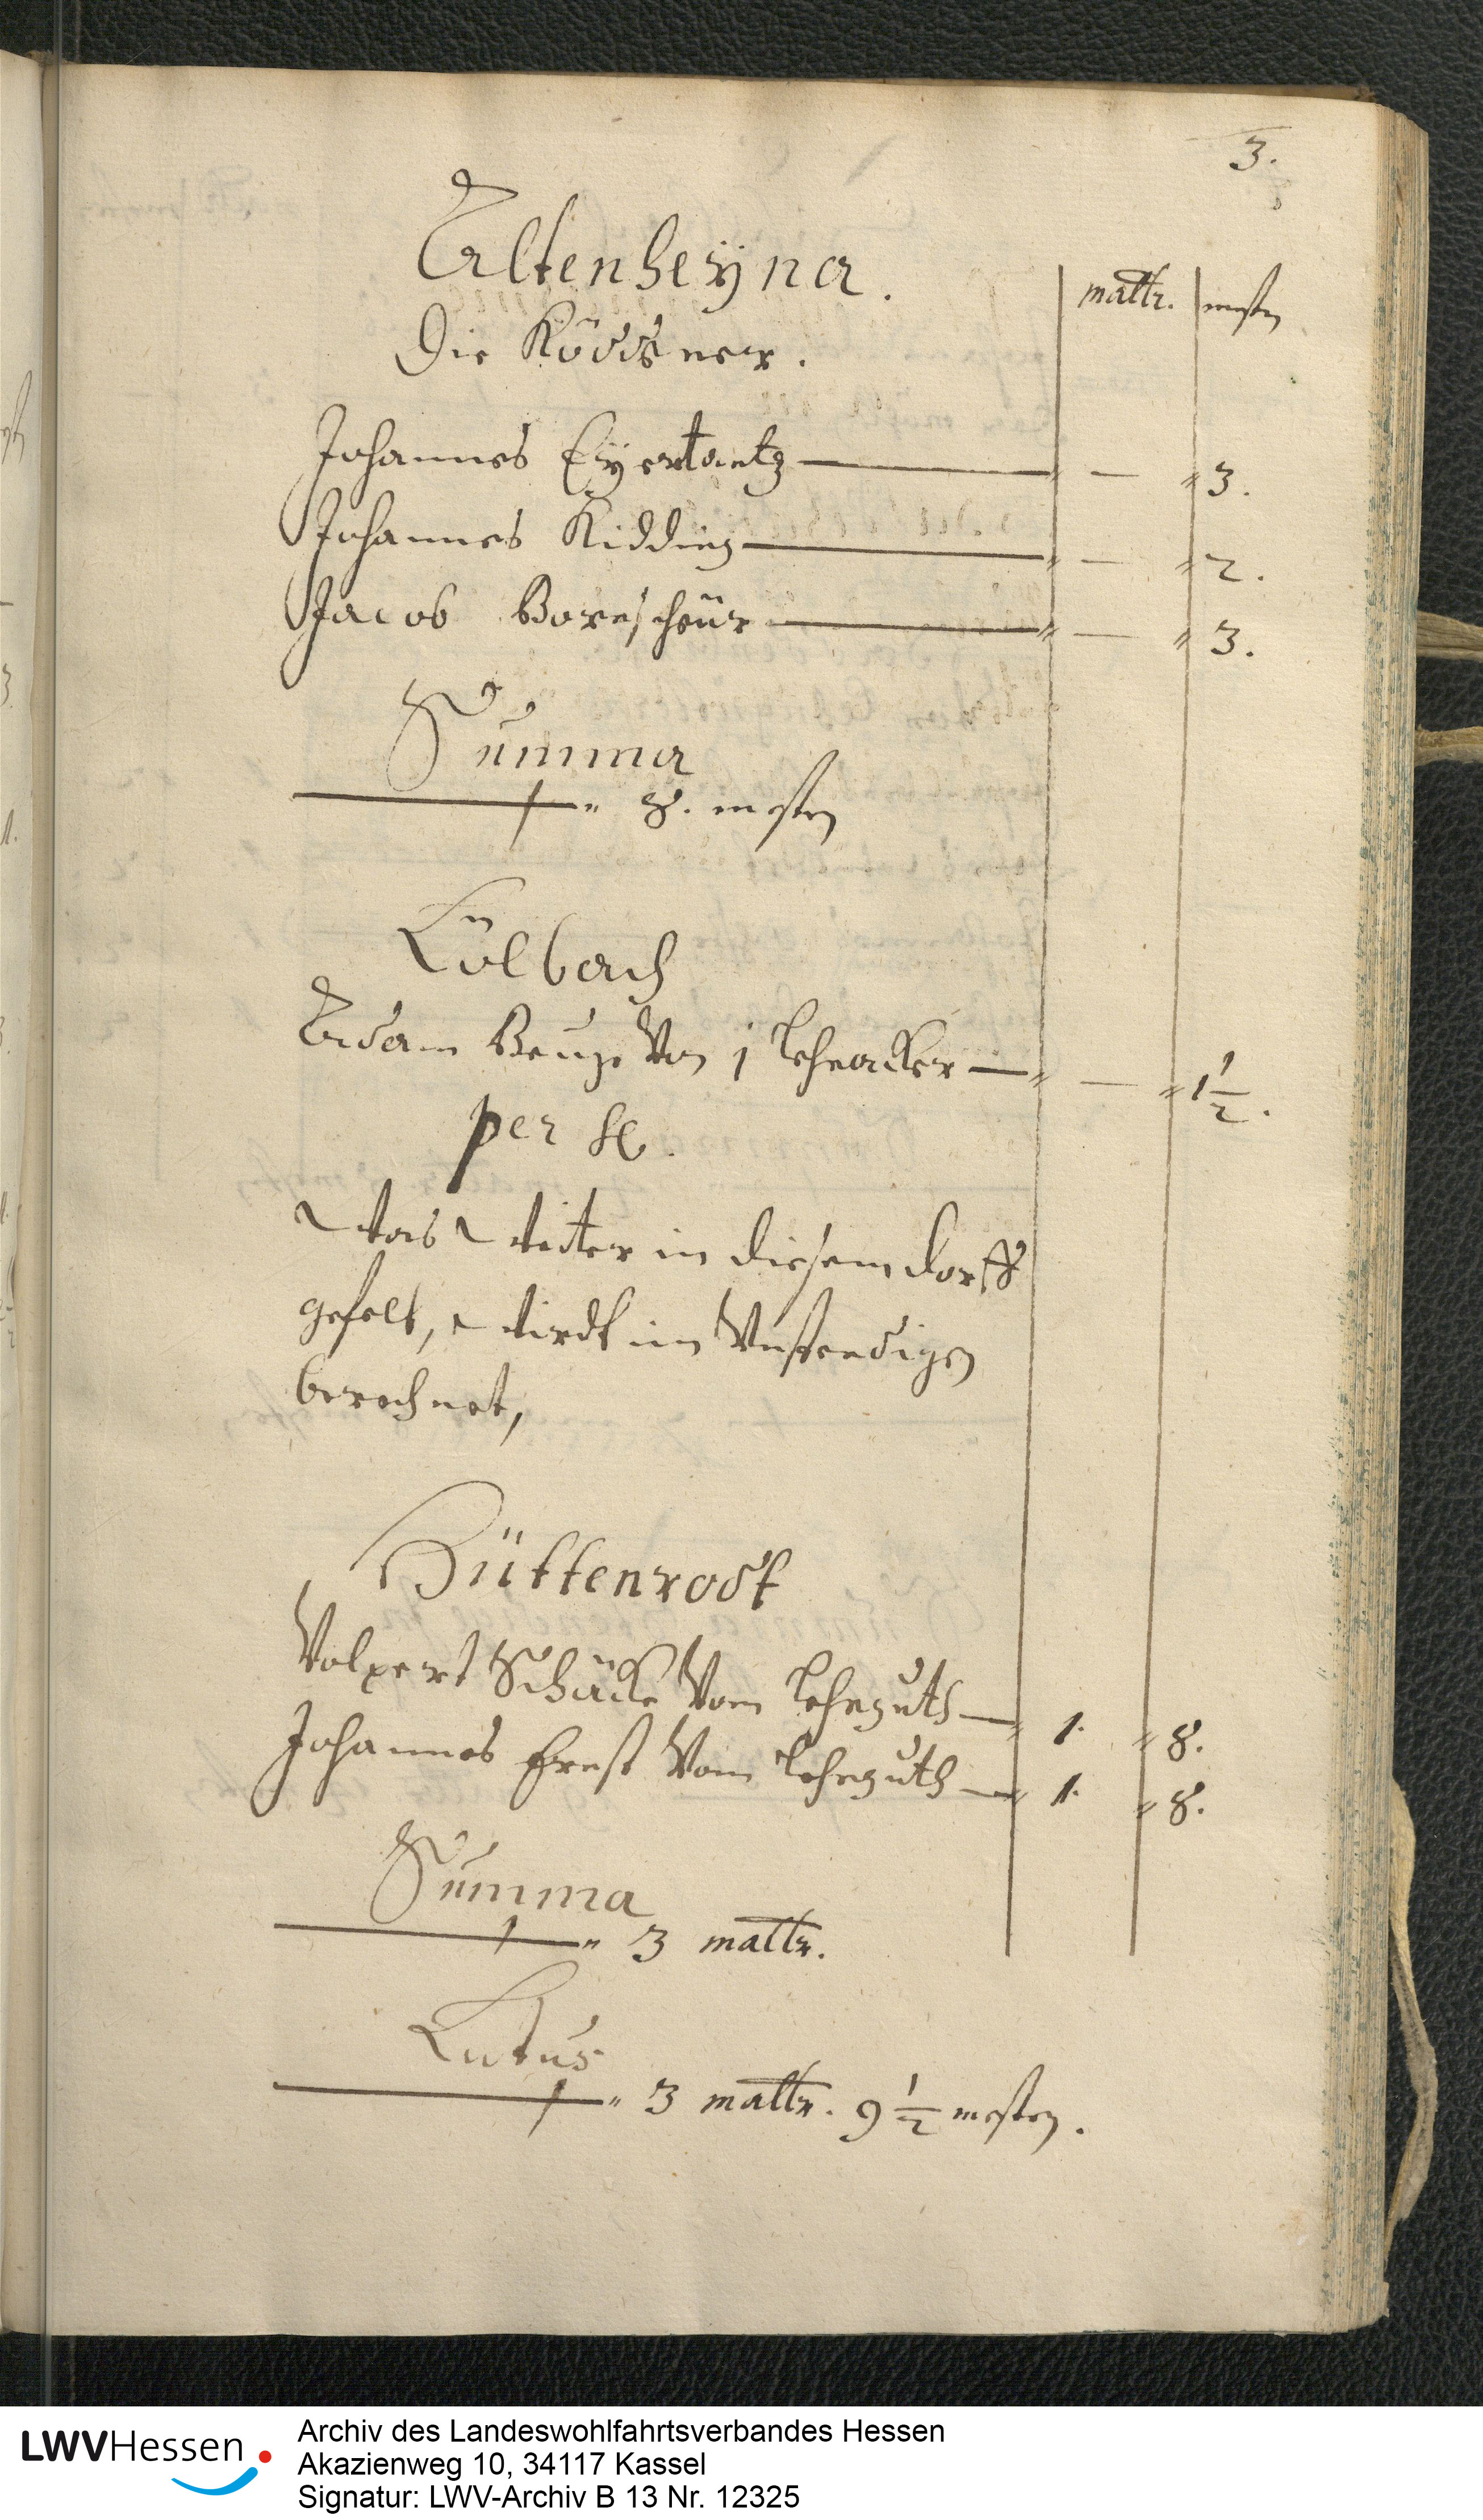 3.
Altenheÿna.
maltr. mesten
Die Ködsner.
Johannes Eÿertantz — — 3.
Johannes Kidding — — 2.
Jacob Bornscheür — — 3.
Summa
8. mesten
Lölbach
Adam Bentze Von 1 Lehnacker — — 1 1/2.
per se.
Was Weiter in diesem dorff
gefelt, Wirdt im Vnstendigen
berechnet,
Hüttenrodt
Volpert Schäcke Vom Lehnguth — 1. 8.
Johannes Ernst Vom Lehnguth — 1. 8.
Summa
3 maltr.
Latus
3 maltr. 9 1/2 mesten.
LWVHessen
Archiv des Landeswohlfahrtsverbandes Hessen
Akazienweg 10, 34117 Kassel
Signatur: LWV-Archiv B 13 Nr. 12325